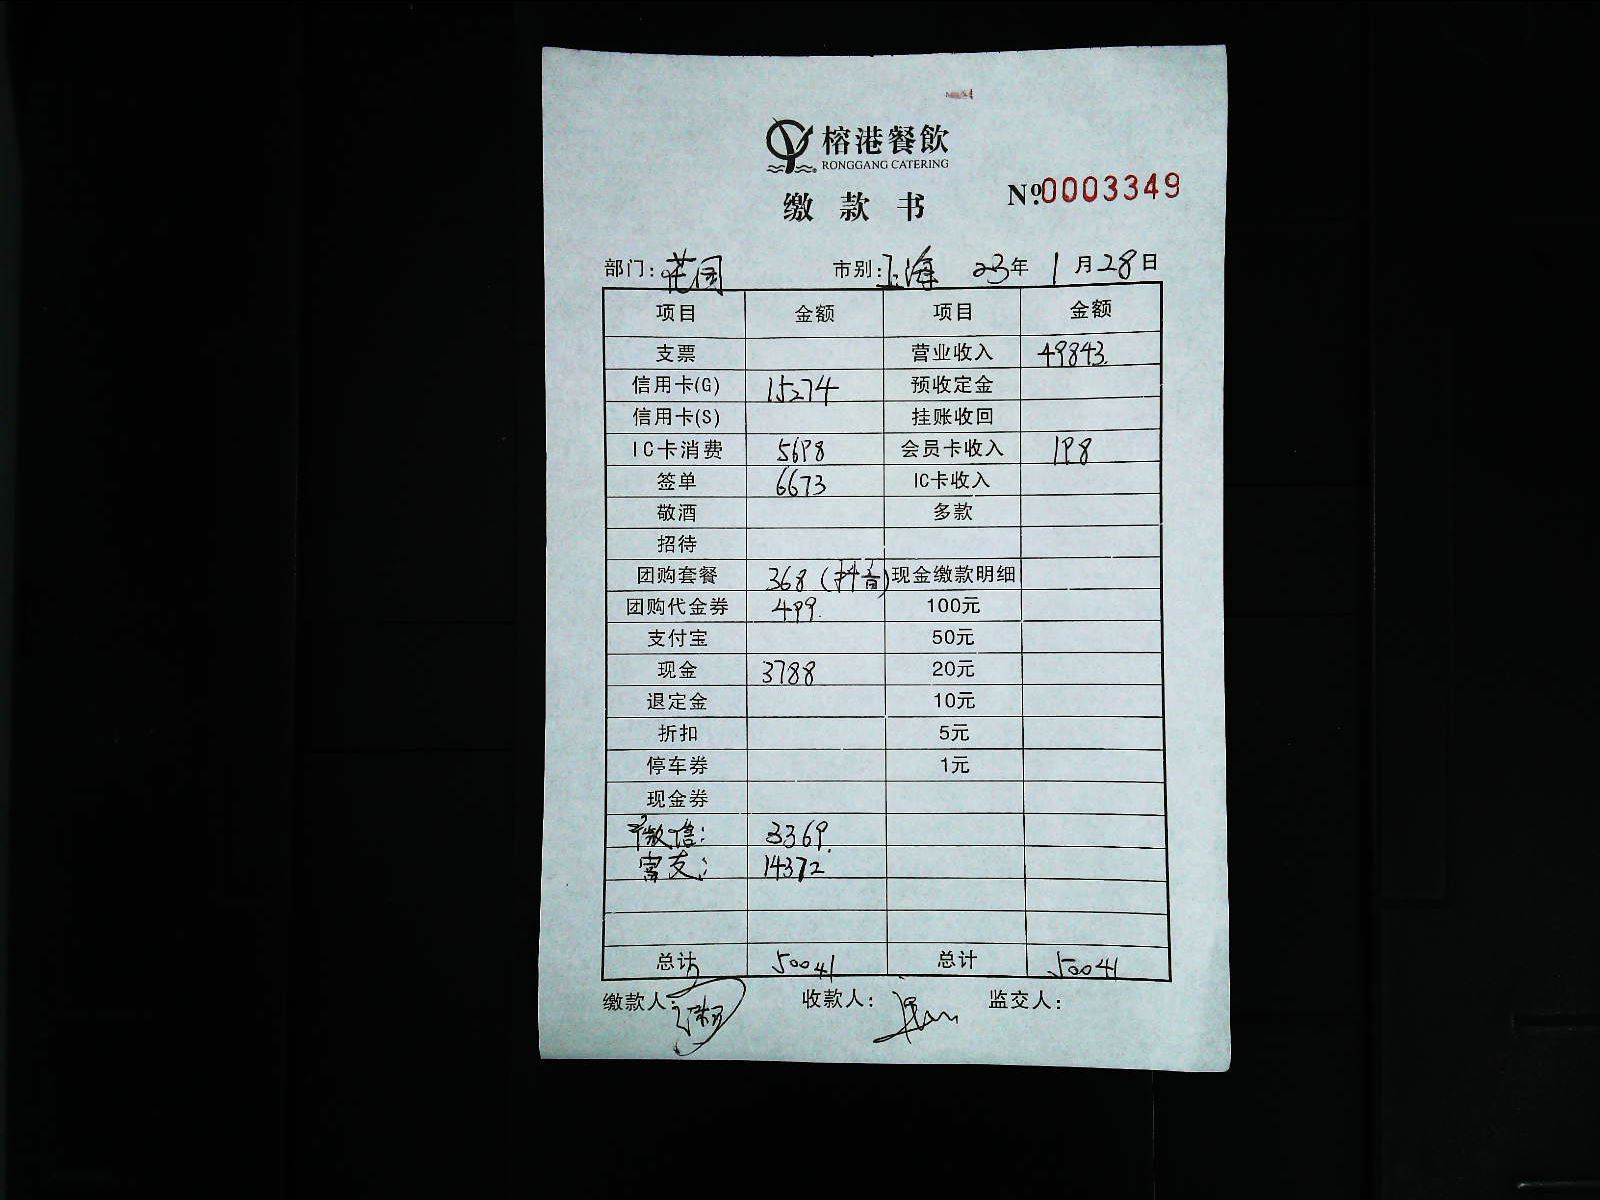 榕港餐飲
RONGGANG CATERING
缴款书 №0003349
部门:花园 市别:上海 23年1月28日
项目 金额 项目 金额
支票 营业收入 49843
信用卡(G) 15274 预收定金
信用卡(S) 挂账收回
IC卡消费 5698 会员卡收入 198
签单 6673 IC卡收入
敬酒 多款
招待
团购套餐 368(抖音) 现金缴款明细
团购代金券 499 100元
支付宝 50元
现金 3788 20元
退定金 10元
折扣 5元
停车券 1元
现金券
微信: 3369
富友: 14372
总计 50041 总计 50041
缴款人: 收款人: 监交人: